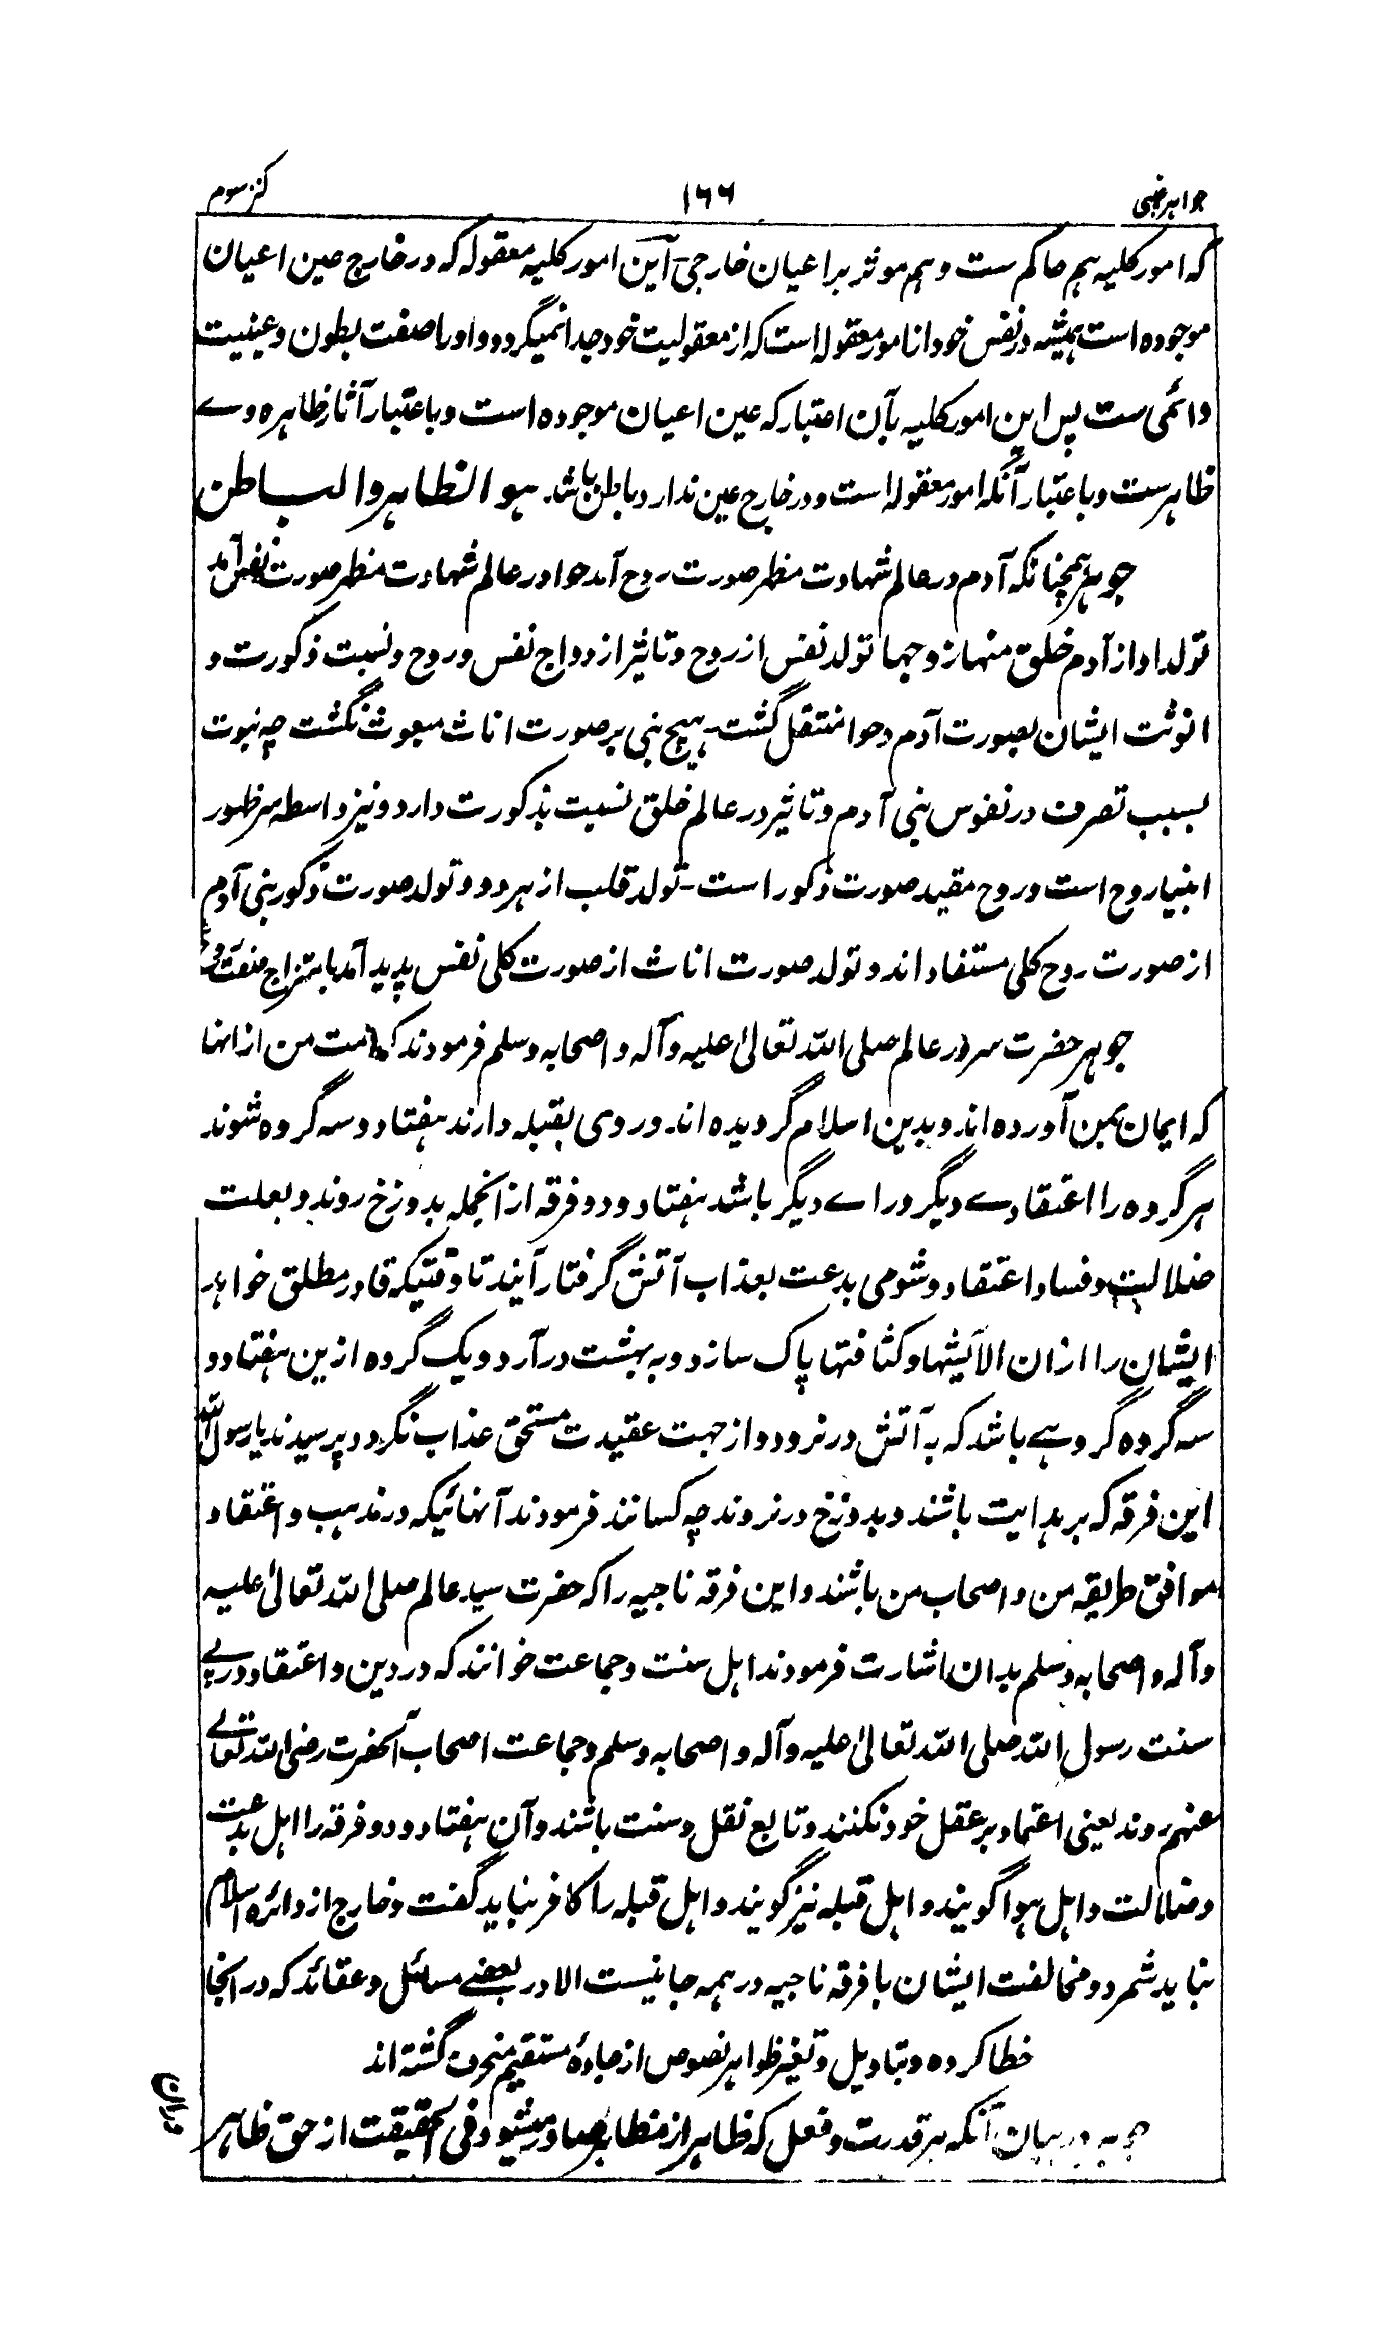 جواہر غیبی ۱۶۶ کنز سوم
کہ امور کلیہ ہم حاکم ست و ہم موثر بر اعیان خارجی آین امور کلیہ معقولہ کہ در خارج عین اعیان
موجودہ است ہمیشہ در نفس خود انا مور معقولہ است کہ از معقولیت خود جدا نمیگردد و او را صفت بطون و عینیت
دائمی ست پس این امور کلیہ بآن اعتبار کہ عین اعیان موجودہ است و باعتبار آثار ظاہرہ وے
ظاہرست و باعتبار آنکہ امور معقولہ است و در خارج عین ندارد باطن باشد۔ ہو الظاہر و الباطن
جوہر ہمچنانکہ آدم در عالم شہادت مظہر صورت روح آمد حوا در عالم شہادت مظہر صورت نفس آمد
تولد او از آدم خلق منہا زوجہا تولد نفس از روح و تاثیر ازدواج نفس و روح و نسبت ذکورت و
انوثت ایشان بصورت آدم و حوا منتقل گشت۔ ہیچ نبی بر صورت اناث مبعوث نگشت چہ نبوت
بسبب تصرف در نفوس بنی آدم و تاثیر در عالم خلق نسبت بذکورت دارد و نیز واسطہ سر ظہور
انبیا روح است و روح مقید صورت ذکور است۔ تولد قلب از ہر دو و تولد صورت ذکور بنی آدم
از صورت روح کلی مستفاد اند و تولد صورت اناث از صورت کلی نفس پدید آمد بامتزاج صنعت
جوہر حضرت سرور عالم صلی اللہ تعالیٰ علیہ و آلہ و اصحابہ وسلم فرمودند کہ امت من از انہا
کہ ایمان بمن آوردہ اند و بدین اسلام گردیدہ اند۔ و روی بقبلہ دارند ہفتاد و سہ گروہ شوند
ہر گروہ را اعتقادے دیگر و راے دیگر باشد ہفتاد و دو فرقہ از انجملہ بدوزخ روند و بعلت
ضلالت و فساد اعتقاد و شومی بدعت بعذاب آتش گرفتار آیند تا وقتیکہ قادر مطلق خواہد
ایشان را ازان الایشہا و کثافتہا پاک سازد و بہ بہشت در آرد و یک گروہ ازین ہفتاد و
سہ گروہ گروہے باشد کہ بہ آتش در نرود و از جہت عقیدت مستحق عذاب نگردد پرسیدند یا رسول اللہ
این فرقہ کہ بر ہدایت باشند و بدوزخ در نروند چہ کسانند فرمودند آنہائیکہ در مذہب و اعتقاد
موافق طریقہ من و اصحاب من باشند و این فرقہ ناجیہ را کہ حضرت سید عالم صلی اللہ تعالیٰ علیہ
و آلہ و اصحابہ وسلم بدان اشارت فرمودند اہل سنت و جماعت خوانند کہ در دین و اعتقاد درپے
سنت رسول اللہ صلی اللہ تعالیٰ علیہ و آلہ و اصحابہ وسلم و جماعت اصحاب آنحضرت رضی اللہ تعالے
عنہم روند یعنی اعتماد بر عقل خود نکنند و تابع نقل و سنت باشند و آن ہفتاد و دو فرقہ را اہل بدعت
و ضلالت و اہل ہوا گویند و اہل قبلہ نیز گویند و اہل قبلہ را کافر نباید گفت و خارج از دائرہ اسلام
نباید شمرد و مخالفت ایشان با فرقہ ناجیہ در ہمہ جا نیست الا در بعضے مسائل و عقائد کہ در انجا
خطا کردہ و بتاویل و تغیر ظواہر نصوص از جادۂ مستقیم منحرف گشتہ اند
جوہر در بیان آنکہ ہر قدرت و فعل کہ ظاہر از مظاہر صادر میشود فی الحقیقت از حق ظاہر